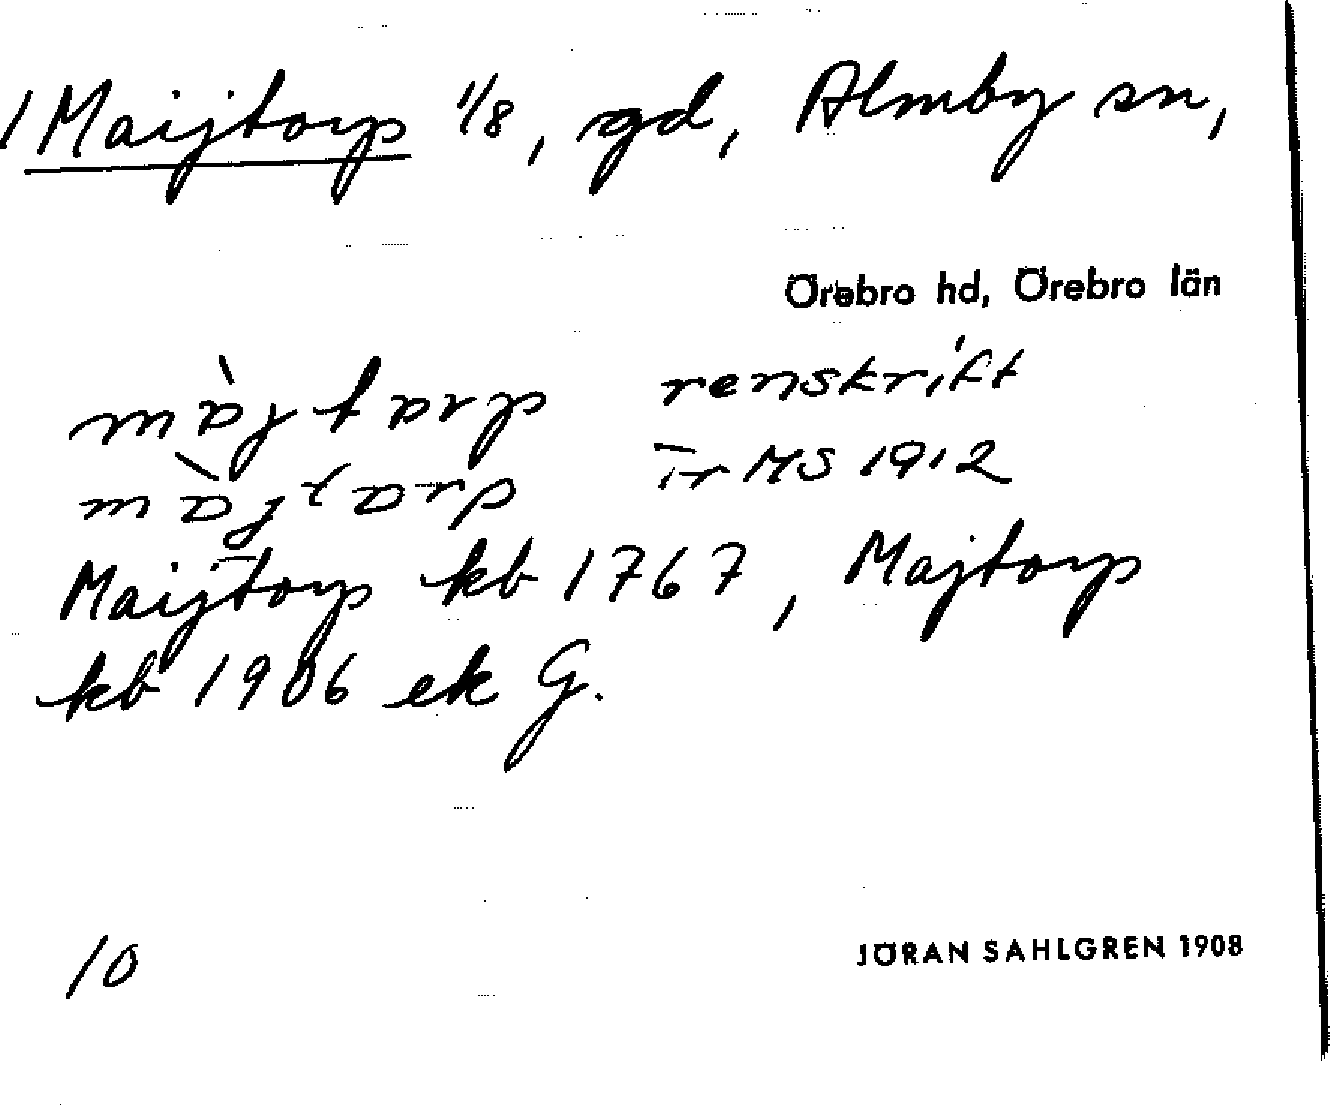 1 Maijtorp 1/8, gd, Almby sn,
Örebro hd, Örebro län
màjtorp renskrift
màjtorp ir MS 1912
Maijtorp kb 1767, Majtorp
kb 1906 ek G.
10
JÖRAN SAHLGREN 1908